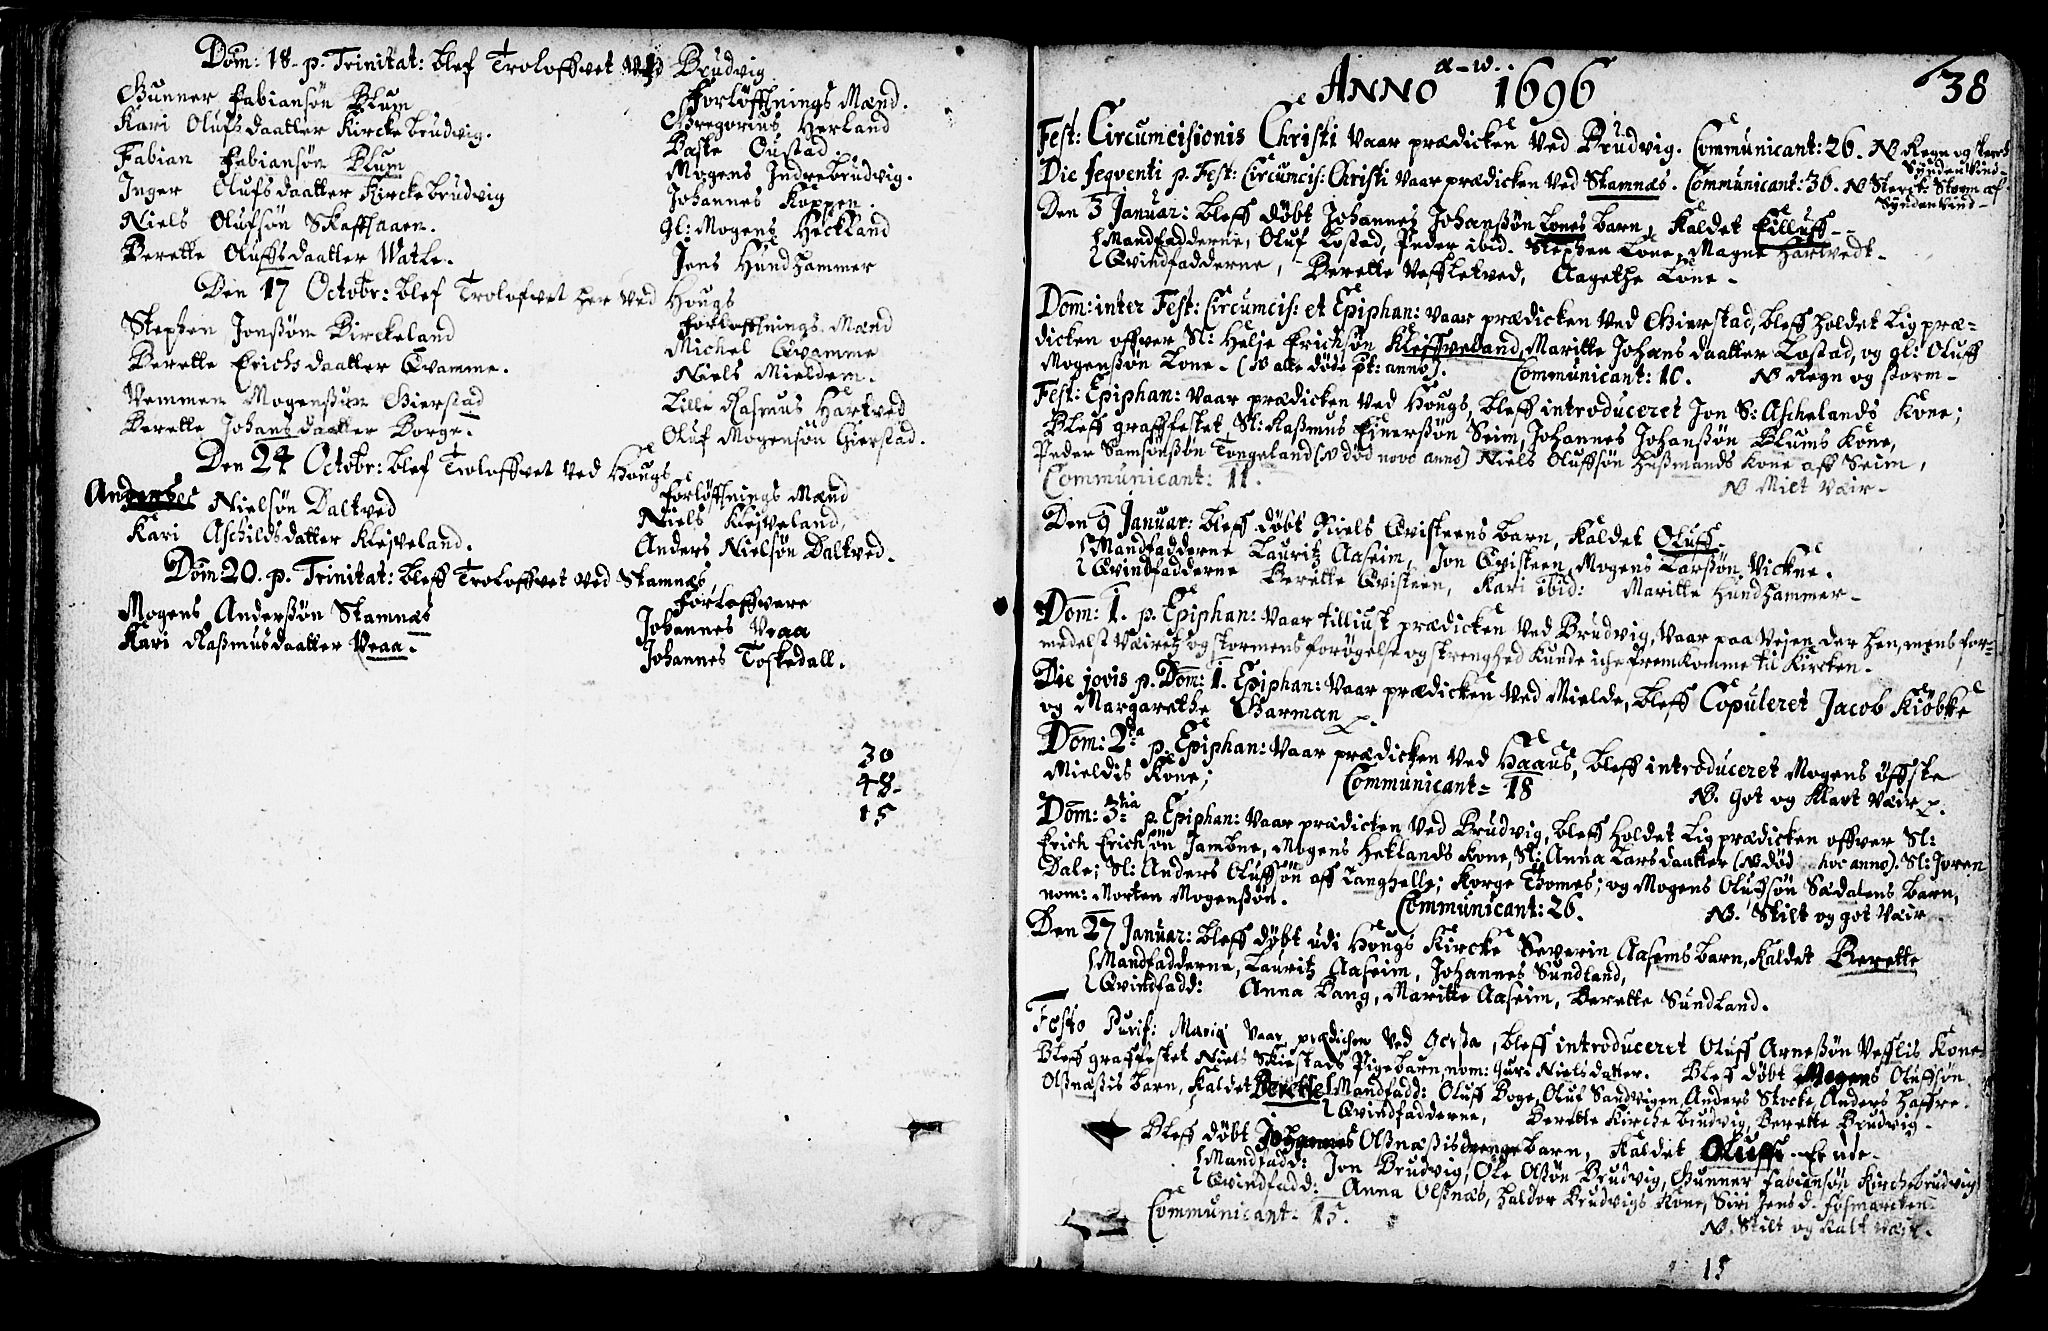 Dom: 18. p. Trinitat: blef Troloffvet Brudvig
Gunner Fabiansøn Blum
Kari Olufsdaatter Kirckebrudvig.
Fabian Fabiansøn Blum
Inger Olufsdaatter Kirckebrudvig
Niels Olufsøn Skafftaaen.
Berette Oluffsdaatter Watle.
Forløffnings Mænd.
Gregorius Herland
Baste Oustad.
Mogens Indrebrudvig.
Johannes Koppen.
gl: Mogens Heckland
Jens Hundhammer
Den 17 Octobr: blef Trolofvet her ved Hougs
Stephen Jonssøn Birckeland
Berette Erichsdaatter Qvamme.
Vemmen Mogenssøn Gierstad
Berette Johansdaatter Borge.
Forloffnings Mænd
Michel Qvamme
Niels Mieldem.
Lille Rasmus Hartved
Oluf Mogensøn Gierstad.
Den 24 Octobr: blef Troloffvet ved Hougs
Anders Nielsøn Daltved
Kari Aschildsdatter Klesveland.
Forløffnings Mænd
Niels Klesveland,
Anders Nielsøn Daltved.
Dom 20. p. Trinitat: bleff Troloffvet ved Stamnæs
Mogens Anderssøn Stamnæs
Kari Rassmusdaatter Vraa.
Forloffvere
Johannes Vraa
Johannes Toskedall.
30
48
15
38
α–ω.
ANNO 1696
Fest: Circumcisionis Christi vaar prædicken ved Brudvig. Communicant: 26. NB Regn og sterck
Synden Vind
Die seqventi p. Fest: Circumcis: Christi vaar prædicken ved Stamnæs. Communicant: 30. NB Sterck Storm af
Synden Vind
Den 3 Januar: bleff døbt Johannes Johanssøn Lones barn, kaldet Eilluff
Mandfadderne, Oluf Lostad, Peder ibid. Stephen Lone, Magne Hartvedt
Qvindfadderne, Berette Vefsletved, Aagethe Lone
Dom: inter Fest: Circumcis: et Epiphan: vaar prædicken ved Gierstad, bleff holdet Lig præ=
dicken offver Sl: Helje Erichsøn Kleffveland, Maritte Johansdaatter Lostad, og gl: Oluff
Mogenssøn Lone (NB alle døde pt: anno). Communicant: 10. NB Regn og storm
Fest: Epiphan: vaar prædicken ved Hougs, bleff introduceret Jon S: Aschelands Kone;
Bleff grafffestet Sl: Rassmus Einerssøn Seim, Johannes Johanssøn Blums Kone,
Peder Samsønssøn Tongeland (NB død novo anno) Niels Oluffsøn Hussmands Kone aff Seim,
Communicant: 11. NB Miet Vær
Den 9 Januar: bleff døbt Niels Qvisteens barn, kaldet Oluff
Mandfadderne Lauritz Aaseim, Jon Qvisteen, Mogens Larssøn Vickne.
Qvindfadderne Berette Qvisteen, Kari ibid: Maritte Hundhammer
Dom: 1. p. Epiphan: vaar tilliust prædicken ved Brudvig, vaar paa Vejen der hen, mens for=
medelst Væiretz og stormens forøgelse og strenghed kunde iche fremkomme til Kircken.
Die jovis p. Dom: 1. Epiphan: vaar prædicken ved Mielde, bleff Copuleret Jacob Kiøbke
og Margarethe Garman p.
Dom: 2da p. Epiphan: vaar prædicken ved Haaus, bleff introduceret Mogens øffste
Mieldis Kone; Communicant= 18 NB. got og klart Væir p.
Dom: 3tia p. Epiphan: vaar prædicken ved Brudvig, bleff holdet Lig prædicken offver Sl:
Erich Erichsøn Jambne, Mogens Heklands Kone, Sl: Anna Larsdaatter (NB død hoc anno). Sl: Joren
Dale; Sl: Anders Oluffsøn aff Langhelle; Korge Thomes; og Mogens Olufsøn Sædalens barn,
nom: Morten Mogenssøn. Communicant: 26. NB. Stilt og got Væir
Den 27 Januar: bleff døbt udi Hougs Kircke Severin Aasems barn, kaldet Berette
Mandfadderne, Lauritz Aaseim, Johannes Sundland,
Qvindfadd: Anna Bang, Maritte Aaseim, Berette Sundland.
Festo Purif: Mariæ vaar prædichen ved , bleff introduceret Oluff Arnessøn Vefflis Kone
Bleff graffestet Niels Skiestads Pigebarn, nom: Guri Nielsdatter. Blef døbt Mogens Oluffsøn
Olssnæssis barn, kaldet Berette Mandfadd: Oluff Boge, Oluf Sandvigen, Anders Stocke, Anders Haffre.
Qvindfadderne, Berette Kirchebrudvig, Berette Brudvig
Bleff døbt Johannes Olssnæssis drengebarn, kaldet Oluff.
Mandfadd: Jon Brudvig, Ole Olssøn Brudvig, Gunner Fabiensøn Kirchebrudvig
Qvindfadd: Anna Olssnæs, Haldor Brudvigs Kone, Siri Jensd. Fosmarcken
Communicant. 15. NB. Stilt og kalt Væir.
15